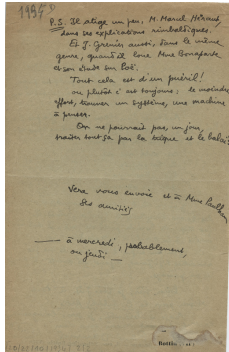 1937?
P.S. Il atige un peu, M. Marcel Héraut,
dans ses explications rimbaldiques.
Et J. Grenier aussi, dans le même
genre, quand il loue Mme Bonaparte
et son étude sur Poë.
Tout cela est d'un puéril!
ou plutôt c'est toujours : le moindre
effort, trouver un système, une machine
à penser.
On ne pourrait pas, un jour,
traiter tout ça par la trique et le balai?
Vera vous envoie et à Mme Paulhan
des amitiés
— à mercredi, probablement,
ou jeudi —